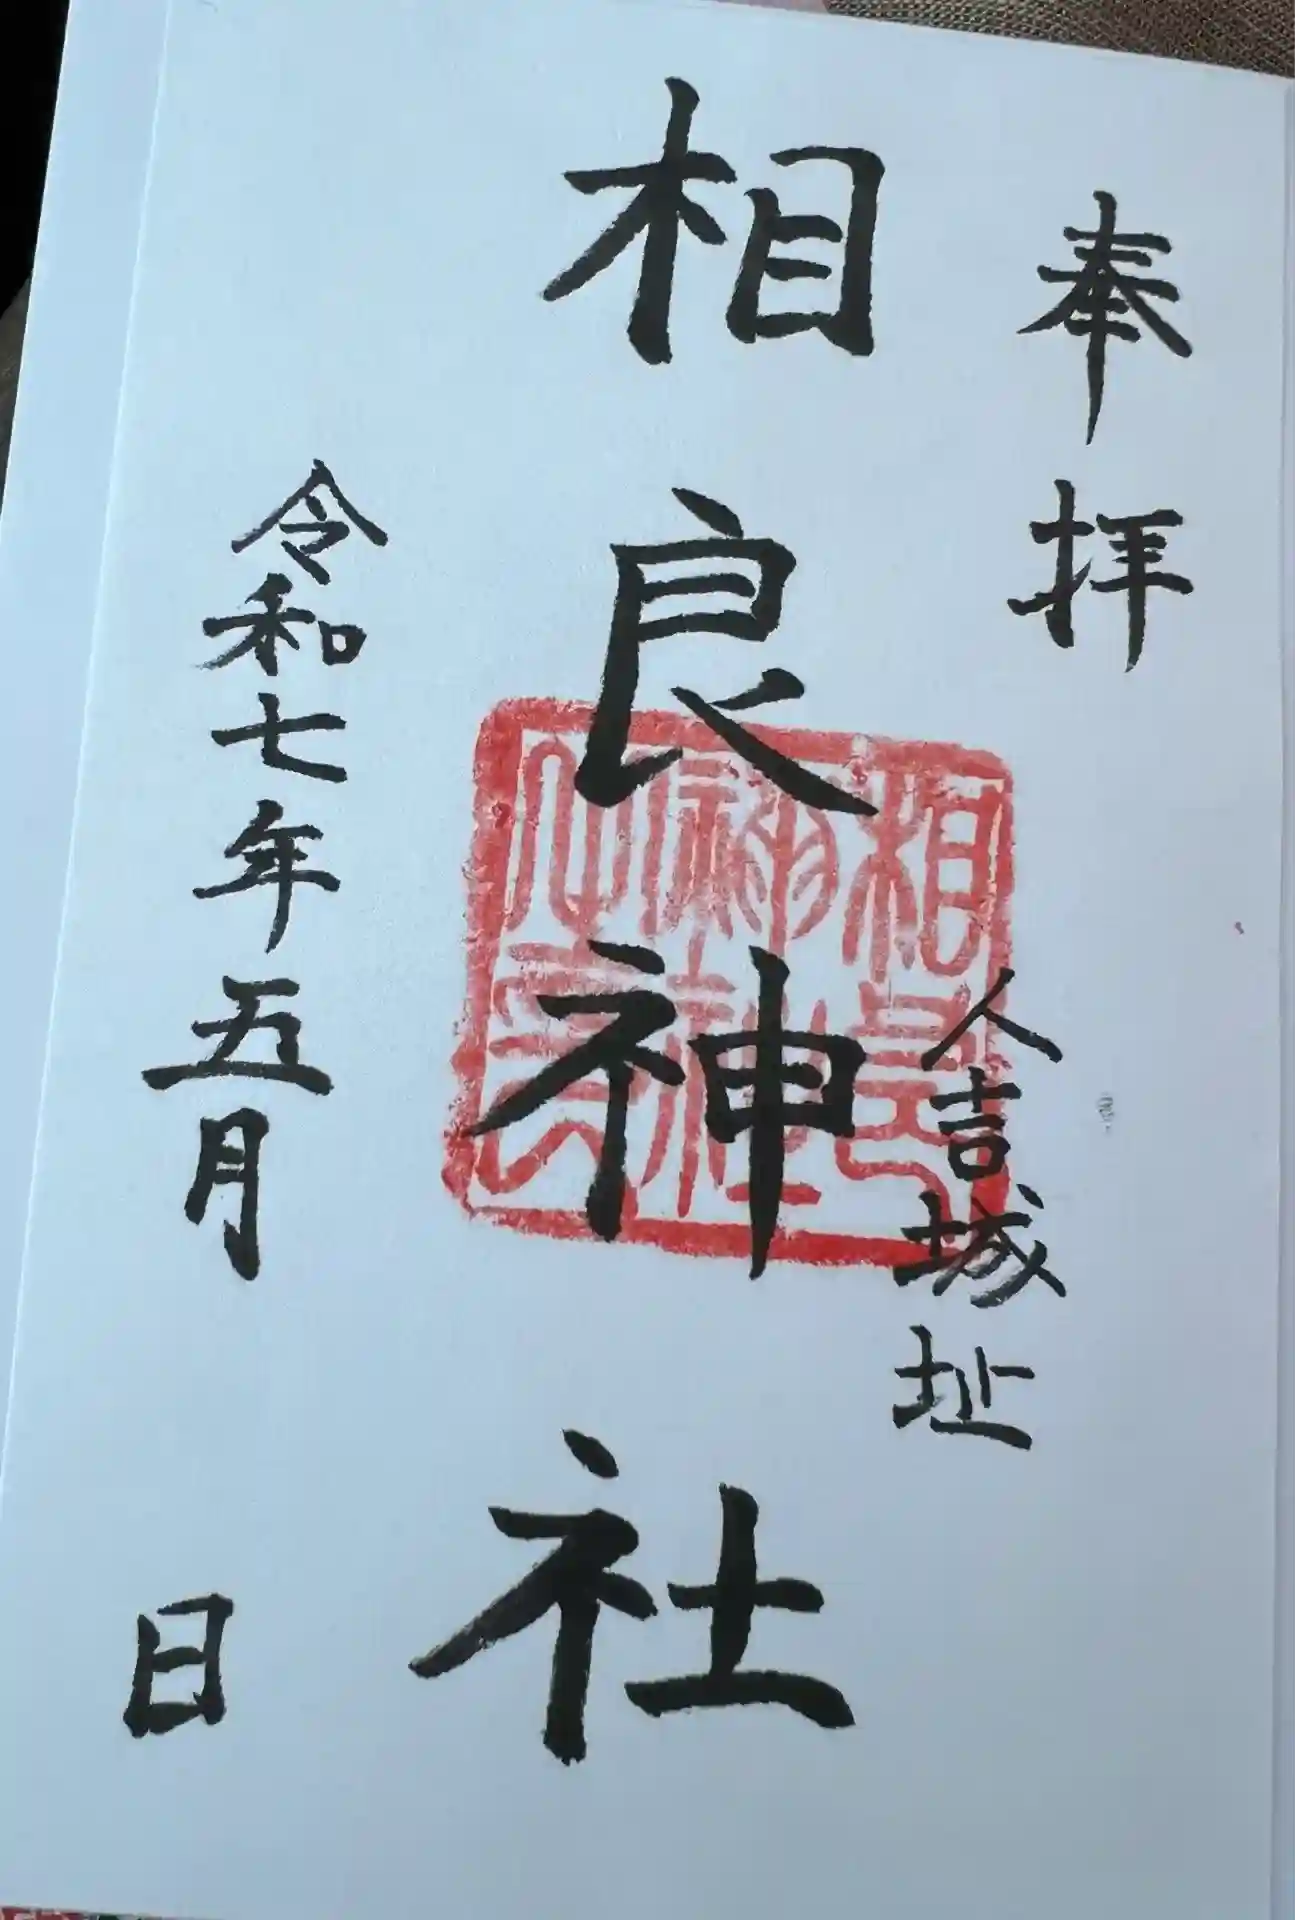 奉拝
人吉城址
相良神社
相良神社之印
令和七年五月 日